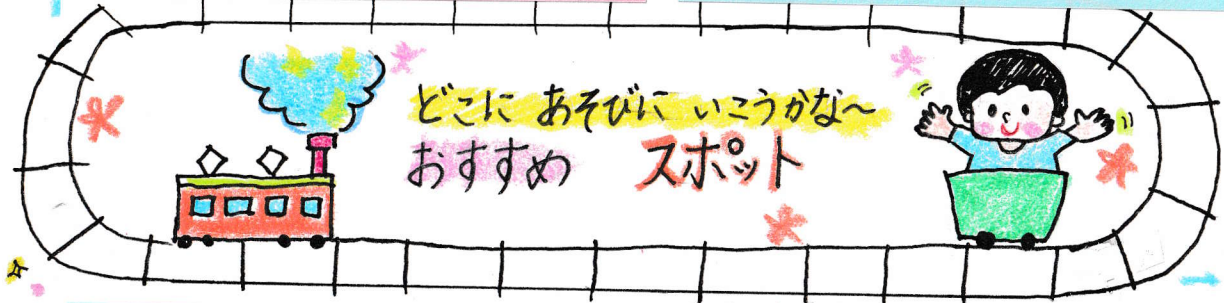 どこに あそびに いこうかな〜
おすすめ スポット